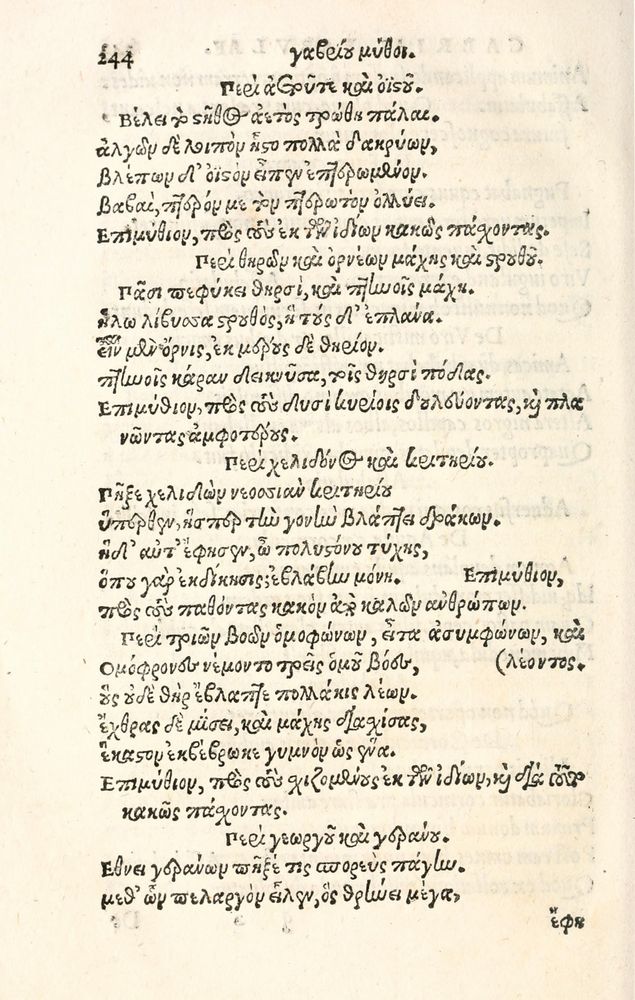 244 γαβρίου μῦθοι.
Περὶ ἀετοῦ τε καὶ ὀϊστοῦ.
Βέλει τὸ στῆθος ἀετὸς τρώθη πάλαι.
ἀλγῶν δὲ λοιπὸν ἧστο πολλὰ δακρύων,
βλέπων δ' ὀϊστὸν εἶπεν ἐπτερωμένον.
βαβαὶ, πτερόν με τὸν πτερωτὸν ὀλλύει.
Επιμύθιον, πρὸς τοὺς ἐκ τῶν ἰδίων κακῶς πάσχοντας.
Περὶ θηρῶν καὶ ὀρνέων μάχης καὶ στρουθοῦ.
Πᾶσι πεφύκει θηρσὶ, καὶ πτηνοῖς μάχη.
ἥλω λίβυσσα στρουθὸς, ἣ τούς δ' ἐπλάνα.
εἶναι μὲν ὄρνις, ἐκ μέρους δὲ θηρίον.
πτηνοῖς κάραν δεικνῦσα, τοῖς θηρσὶ πόδας.
Επιμύθιον, πρὸς τοὺς δυσὶ κυρίοις δουλεύοντας, καὶ πλα
νῶντας ἀμφοτέρους.
Περὶ χελιδόνος καὶ κριτηρίου.
Πῆξε χελιδὼν νεοσσιὰν κριτηρίου
ὕπερθεν, ἧσπερ τὴν γονὴν βλάπτει δράκων.
ἡ δ' αὖτ' ἔφησεν, ὦ πολυστόνου τύχης,
ὅπου γὰρ ἐκδίκησις; ἐβλάβην μόνη. Επιμύθιον,
πρὸς τοὺς παθόντας κακὸν παρὰ καλῶν ἀνθρώπων.
Περὶ τριῶν βοῶν ὁμοφώνων, εἶτα ἀσυμφώνων, καὶ
Ομόφρονες νέμοντο τρεῖς ὁμοῦ βόες, (λέοντος.
οὓς οὐδὲ θὴρ ἔβλαπτε πολλάκις λέων.
ἔχθρας δὲ μίσει, καὶ μάχης διασχίσας,
ἕκαστον ἐκβέβρωκε γυμνὸν ὡς ἕνα.
Επιμύθιον, πρὸς τοὺς σχιζομένους ἐκ τῶν ἰδίων, καὶ διὰ τοῦτο
κακῶς πάσχοντας.
Περὶ γεωργοῦ καὶ γεράνου.
Εθνει γεράνων πῆξέ τις σπορεὺς πάγην.
μεθ' ὧν πελαργὸν εἷλεν, ὃς θρήνει μέγα,
ἔφη